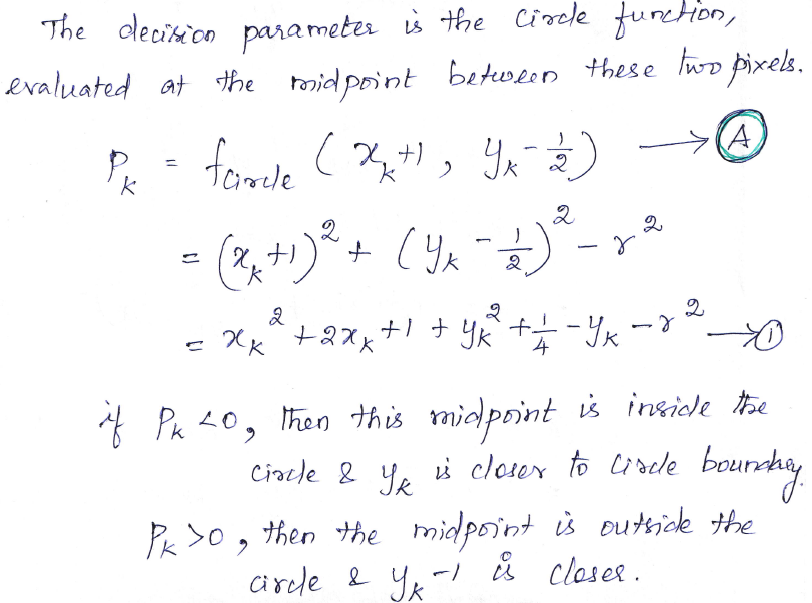 The decision parameter is the circle function,
evaluated at the midpoint between these two pixels.
P_k = f_circle (x_k+1, y_k - 1/2) → Ⓐ
= (x_k+1)² + (y_k - 1/2)² - r²
= x_k² + 2x_k + 1 + y_k² + 1/4 - y_k - r² → ①
if P_k <0, then this midpoint is inside the
circle & y_k is closer to circle boundary.
P_k >0, then the midpoint is outside the
circle & y_k -1 is closer.